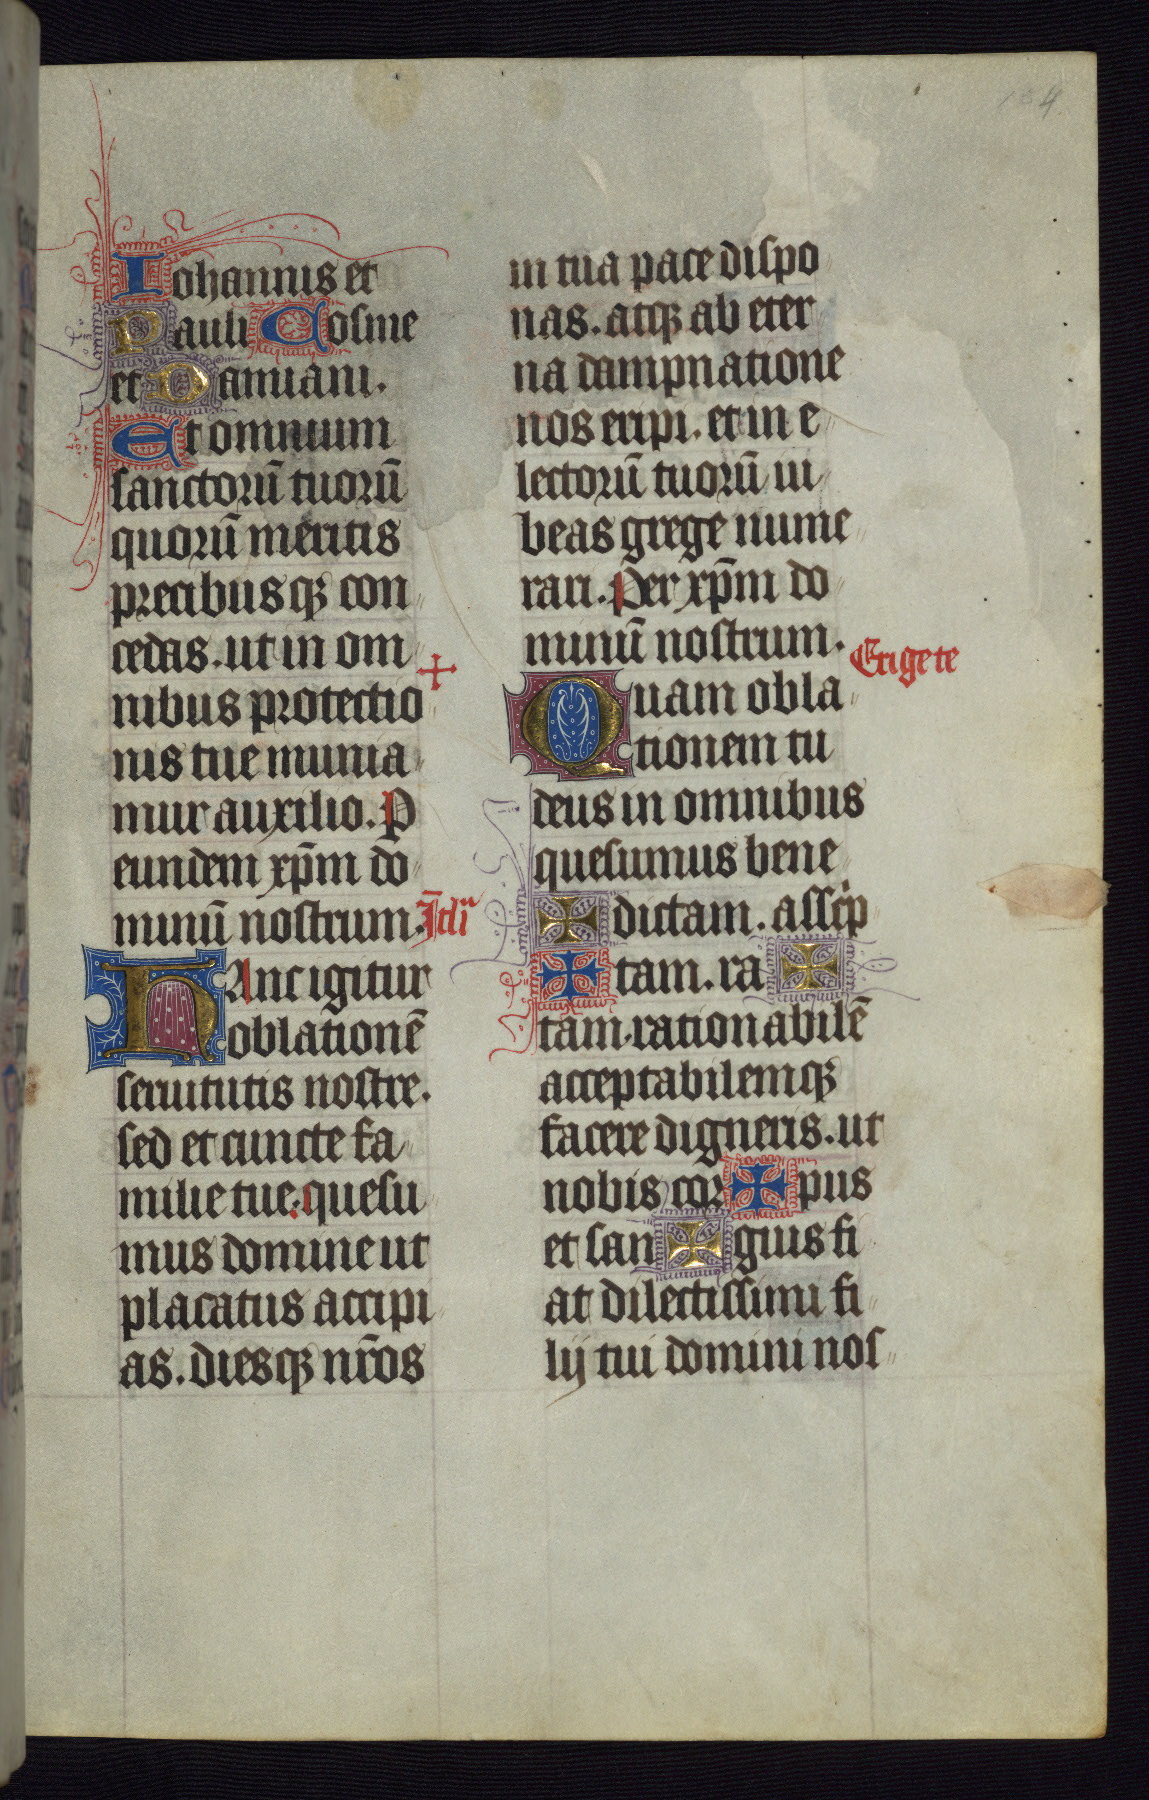 Iohannis et
Pauli Cosme
et Damiani.
Et omnium
sanctorū tuorū
quorū meritis
precibusqꝫ con
cedas. ut in om
nibus protectio
nis tue munia
mur auxilio. P
eundem xp̄m do
minū nostrum.
Hanc igitur
oblationē
seruitutis nostre.
sed et cuncte fa
milie tue. quesu
mus domine ut
placatus accipi
as. diesqꝫ nr̄os
in tua pace dispo
nas. atqꝫ ab eter
na dampnatione
nos eripi. et in e
lectorū tuorū iu
beas grege nume
rari. Per xp̄m do
minū nostrum.
Erige te
Quam obla
tionem tu
deus in omnibus
quesumus bene
✠ dictam. asscͥp
✠ tam. ra ✠
tam. rationabilē
acceptabilemqꝫ
facere digneris. ut
nobis cor ✠ pus
et san ✠ guis fi
at dilectissimi fi
lij tui domini nos